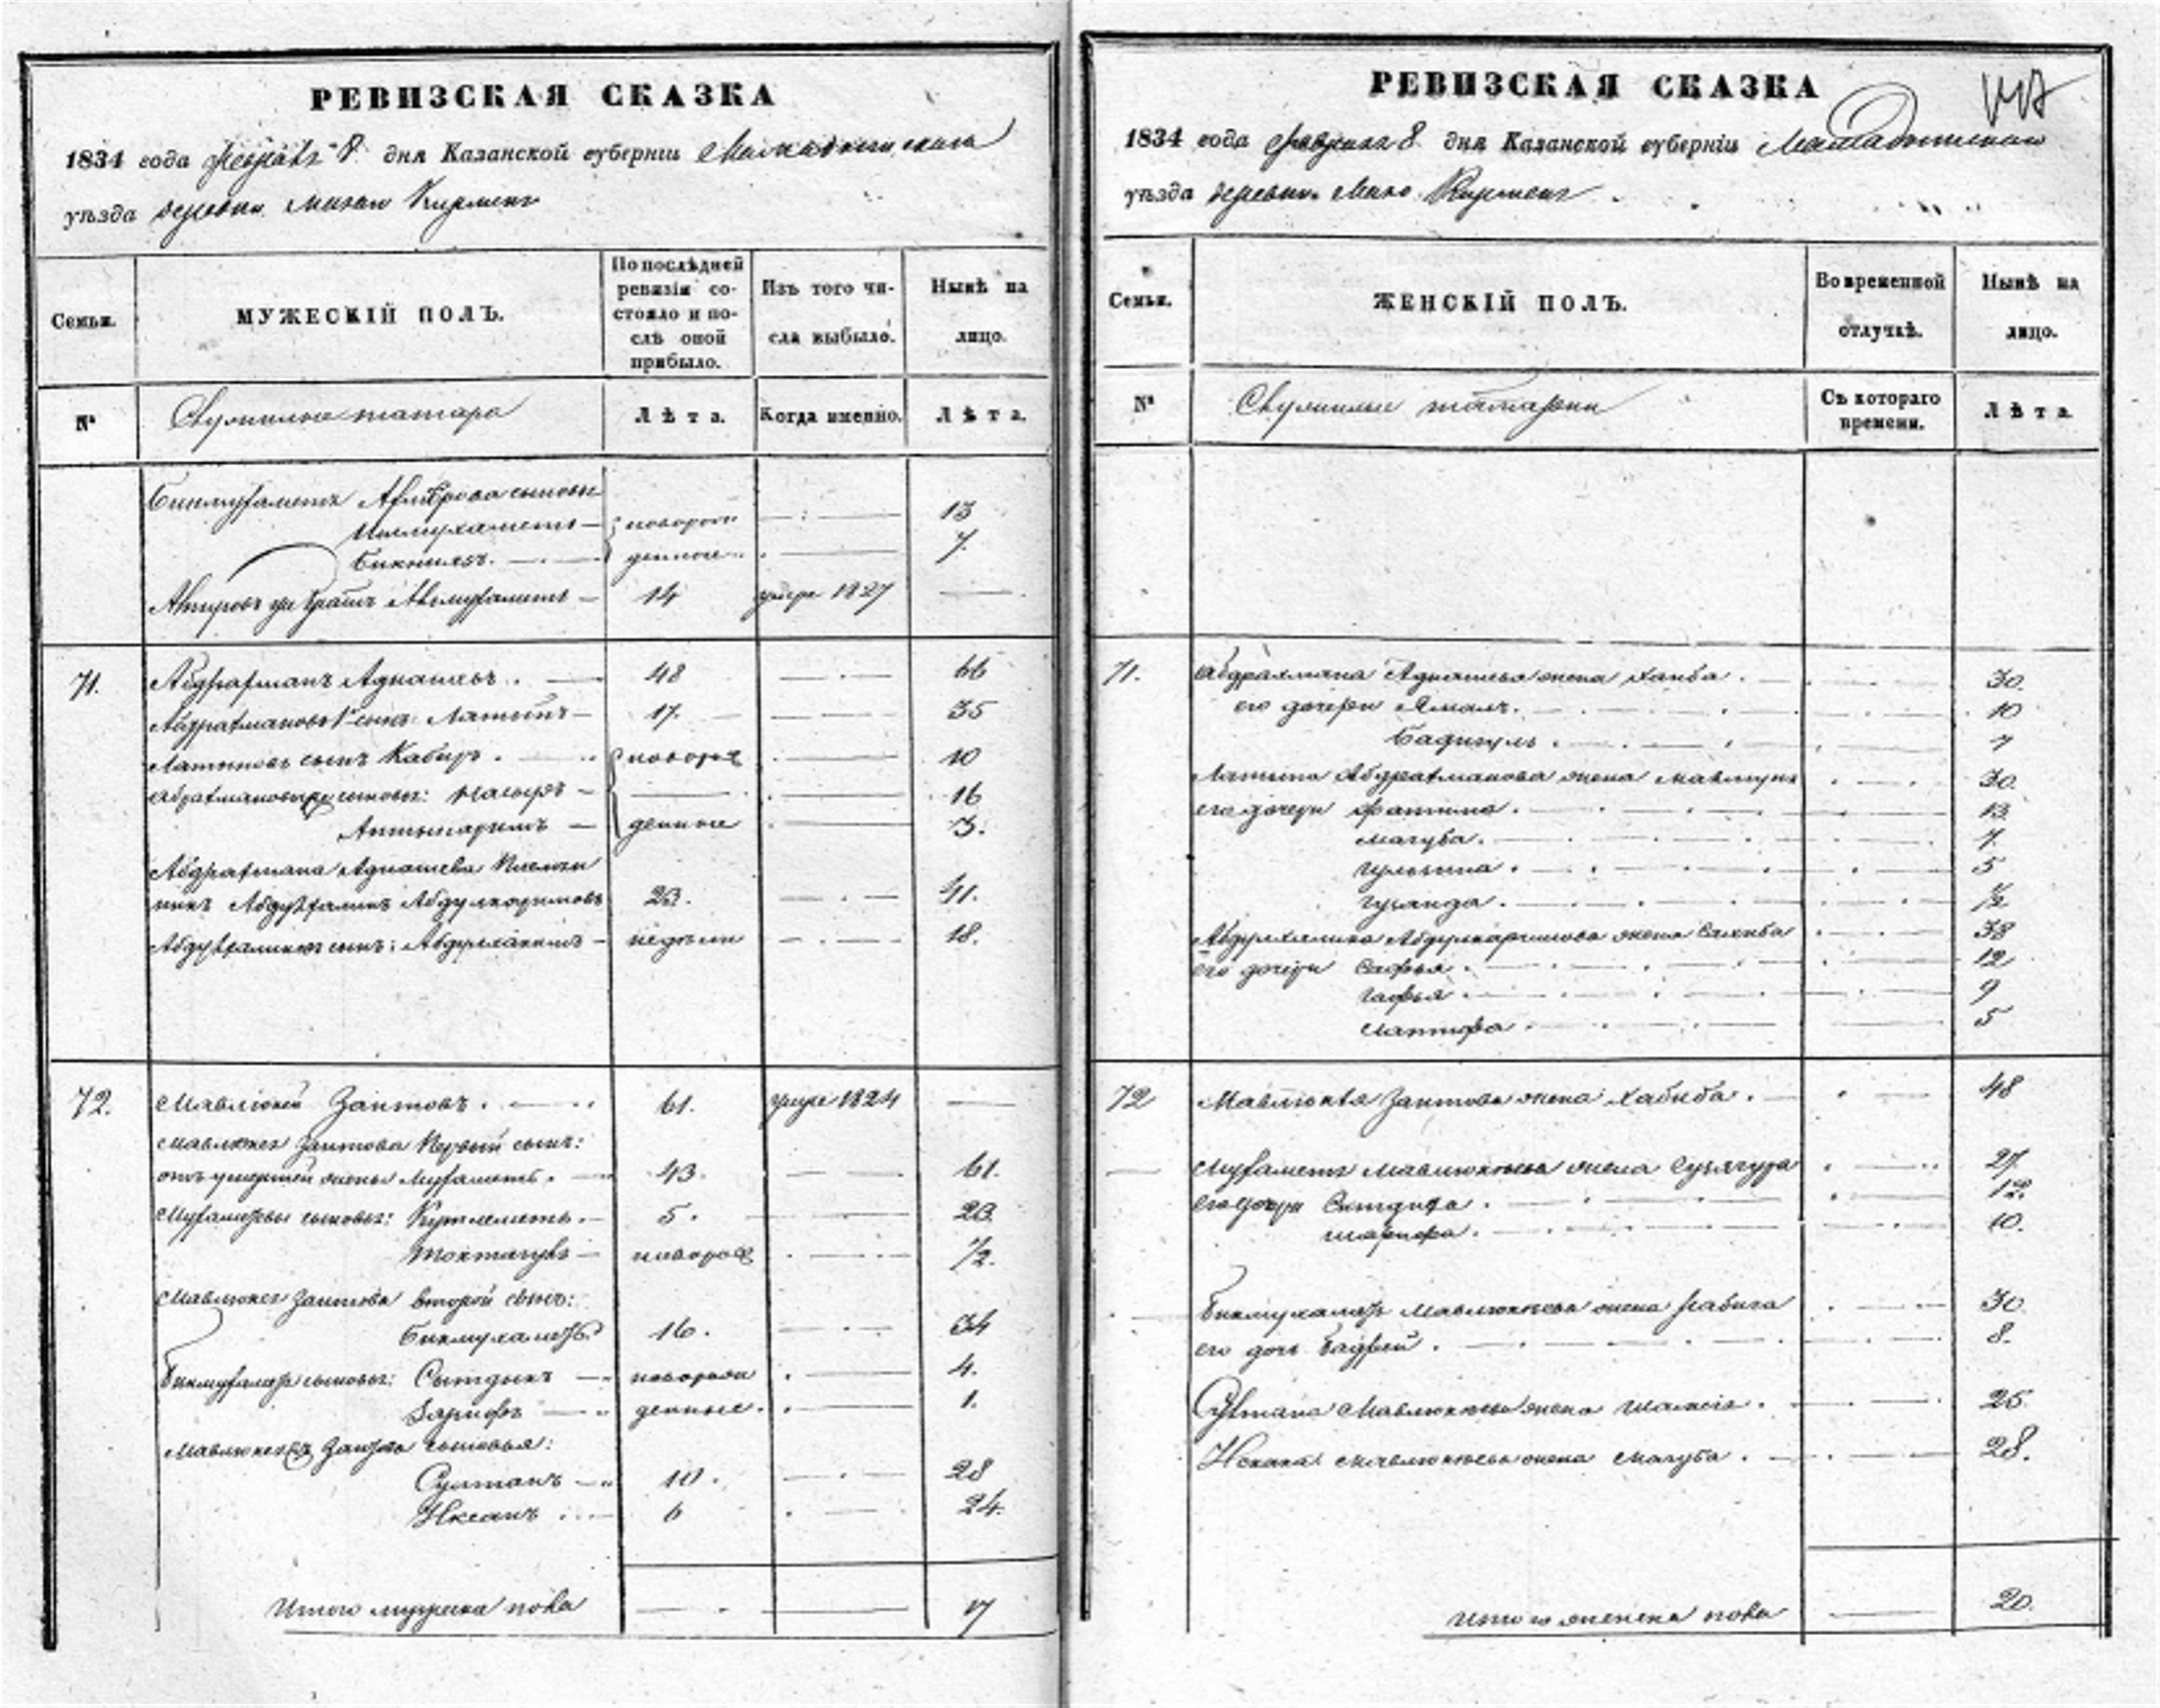 РЕВИЗСКАЯ СКАЗКА
1834 года февраля 8 дня Казанской губернiи Мамадышскаго
уѣзда деревни Кирмень
Семьи.
МУЖЕСКIЙ ПОЛЪ.
По послѣдней
ревизiи со-
стояло и по-
слѣ оной
прибыло.
Изъ того чи-
сла выбыло.
Нынѣ на
лицо.
№
татара
Лѣта.
Когда именно.
Лѣта.
Бикмухаметъ сыновья
13
7
14 умре 1827
71. Абдрахманъ Аднашевъ 48 66
Абдрахмановъ 1й сынъ Латыпъ 17. 35
Латыповъ сынъ Кабиръ новоро 10
Абдрахмановы сыновья: Насыръ 16
денные 3.
Абдрахмана Аднашева племян
никъ Абдулхаликъ Абдулкаримовъ 23. 41.
Абдулхаликовъ сынъ: недѣли 18.
72. Мавлюкей Заитовъ 61. умре 1824
Мавлюкея Заитова первый сынъ:
отъ умершей жены Мухаметь 43. 61.
Мухаметевы сыновья: Кутлеметь 5. 23.
Токтагулъ новорож 1/2.
Мавлюкея Заитова второй сынъ:
Бикмухаметь 16. 34
сыновья: Сытдыкъ новорож 4.
Зарифъ денные 1.
Мавлюкея Заитова сыновья:
Султанъ 10. 28
Иксанъ 6 24.
Итого мужеска пола 17
РЕВИЗСКАЯ СКАЗКА
1834 года февраля 8 дня Казанской губернiи Мамадышскаго
уѣзда деревни Кирмень
Семьи.
ЖЕНСКIЙ ПОЛЪ.
Во временной
отлучкѣ.
Нынѣ на
лицо.
№
татарки
Съ котораго
времени.
Лѣта
71. Абдрахмана Аднашева жена Ханба 30.
его дочери Ямалъ 10
Бадигуль 7
Латыпа Абдрахманова жена 30.
его дочери Фатима 13
Магуба 7.
5
1/2
Абдулхалика Абдулкаримова жена Сахиба 38
его дочери Сафья 12
Гафья 9
Латифа 5
72 Мавлюкея Заитова жена Хабиба 48
Мухаметя Мавлюкеева жена 27
его дочери Ситдика 12.
Шарифа 10.
Бикмухаметя Мавлюкеева жена Рабига 30
его дочь 8.
Султана Мавлюкеева жена 25.
Иксана Мавлюкеева жена Магуба 28.
Итого женска пола 20.